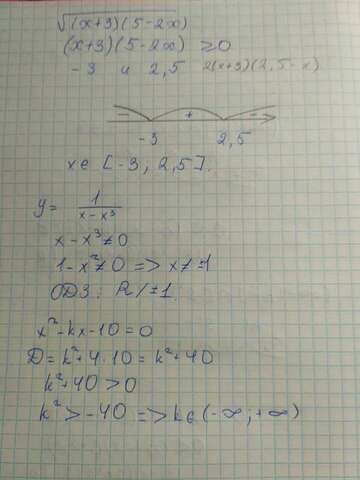 √(x+3)(5-2x)
(x+3)(5-2x) ≥0
-3 и 2,5 2(x+3)(2,5-x)
- + -
-3 2,5
xє [-3; 2,5].
y= 1/(x-x³)
x-x³≠0
1-x²≠0 => x≠±1
ОДЗ: R/±1
x²-kx-10=0
D=k²+4·10=k²+40
k²+40>0
k²>-40 => kє(-∞;+∞)